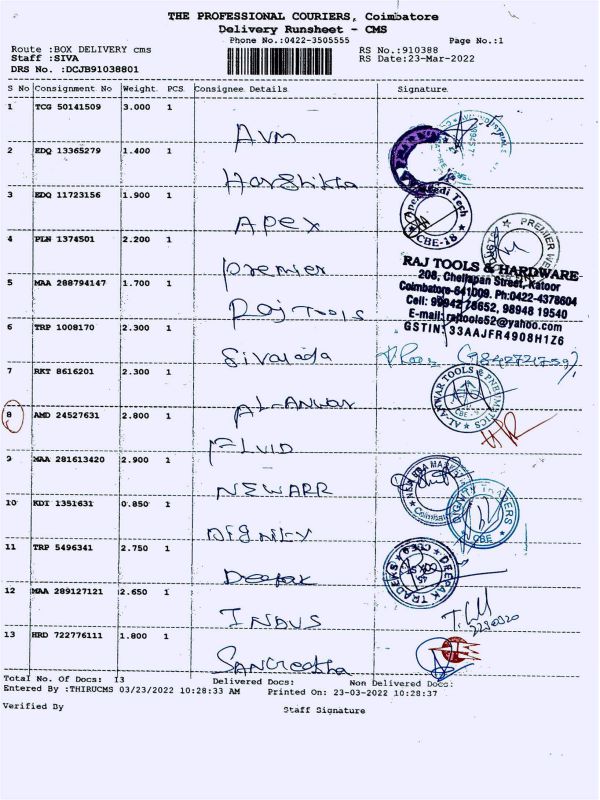 THE PROFESSIONAL COURIERS, Coimbatore
Delivery Runsheet - CMS
Phone No.:0422-3505555
Page No.:1
Route :BOX DELIVERY cms
RS No.:910388
Staff :SIVA
RS Date:23-Mar-2022
DRS No. :DCJB91038801
S No Consignment No Weight PCS Consignee Details Signature
1 TCG 50141509 3.000 1
AVM
2 EDQ 13365279 1.400 1
Harshitha
3 EDQ 11723156 1.900 1
Apex
Apex Medi Tech
CBE-18
4 PLN 1374501 2.200 1
Premier
PREMIER
RAJ TOOLS & HARDWARE
208, Chellapan Street, Katoor
Coimbatore-641009. Ph:0422-4378604
Cell: 99942 78652, 98948 19540
E-mail: rajtools52@yahoo.com
GSTIN: 33AAJFR4908H1Z6
5 MAA 288794147 1.700 1
Raj Tools
6 TRP 1008170 2.300 1
7 RKT 8616201 2.300 1
AL-ANWAR
AL-ANWAR TOOLS & PNEUMATICS
CBE
8 AMD 24527631 2.800 1
FLUID
9 MAA 281613420 2.900 1
NEWARR
Coimbatore
10 KDI 1351631 0.850 1
Dignity
DIGNITY TRADERS
CBE
11 TRP 5496341 2.750 1
Deepak
DEEPAK TRADERS
12 MAA 289127121 2.650 1
INDUS
13 HRD 722776111 1.800 1
Sangeetha
Total No. of Docs: 13 Delivered Docs: Non Delivered Docs:
Entered By :THIRUCMS 03/23/2022 10:28:33 AM Printed On: 23-03-2022 10:28:37
Verified By Staff Signature